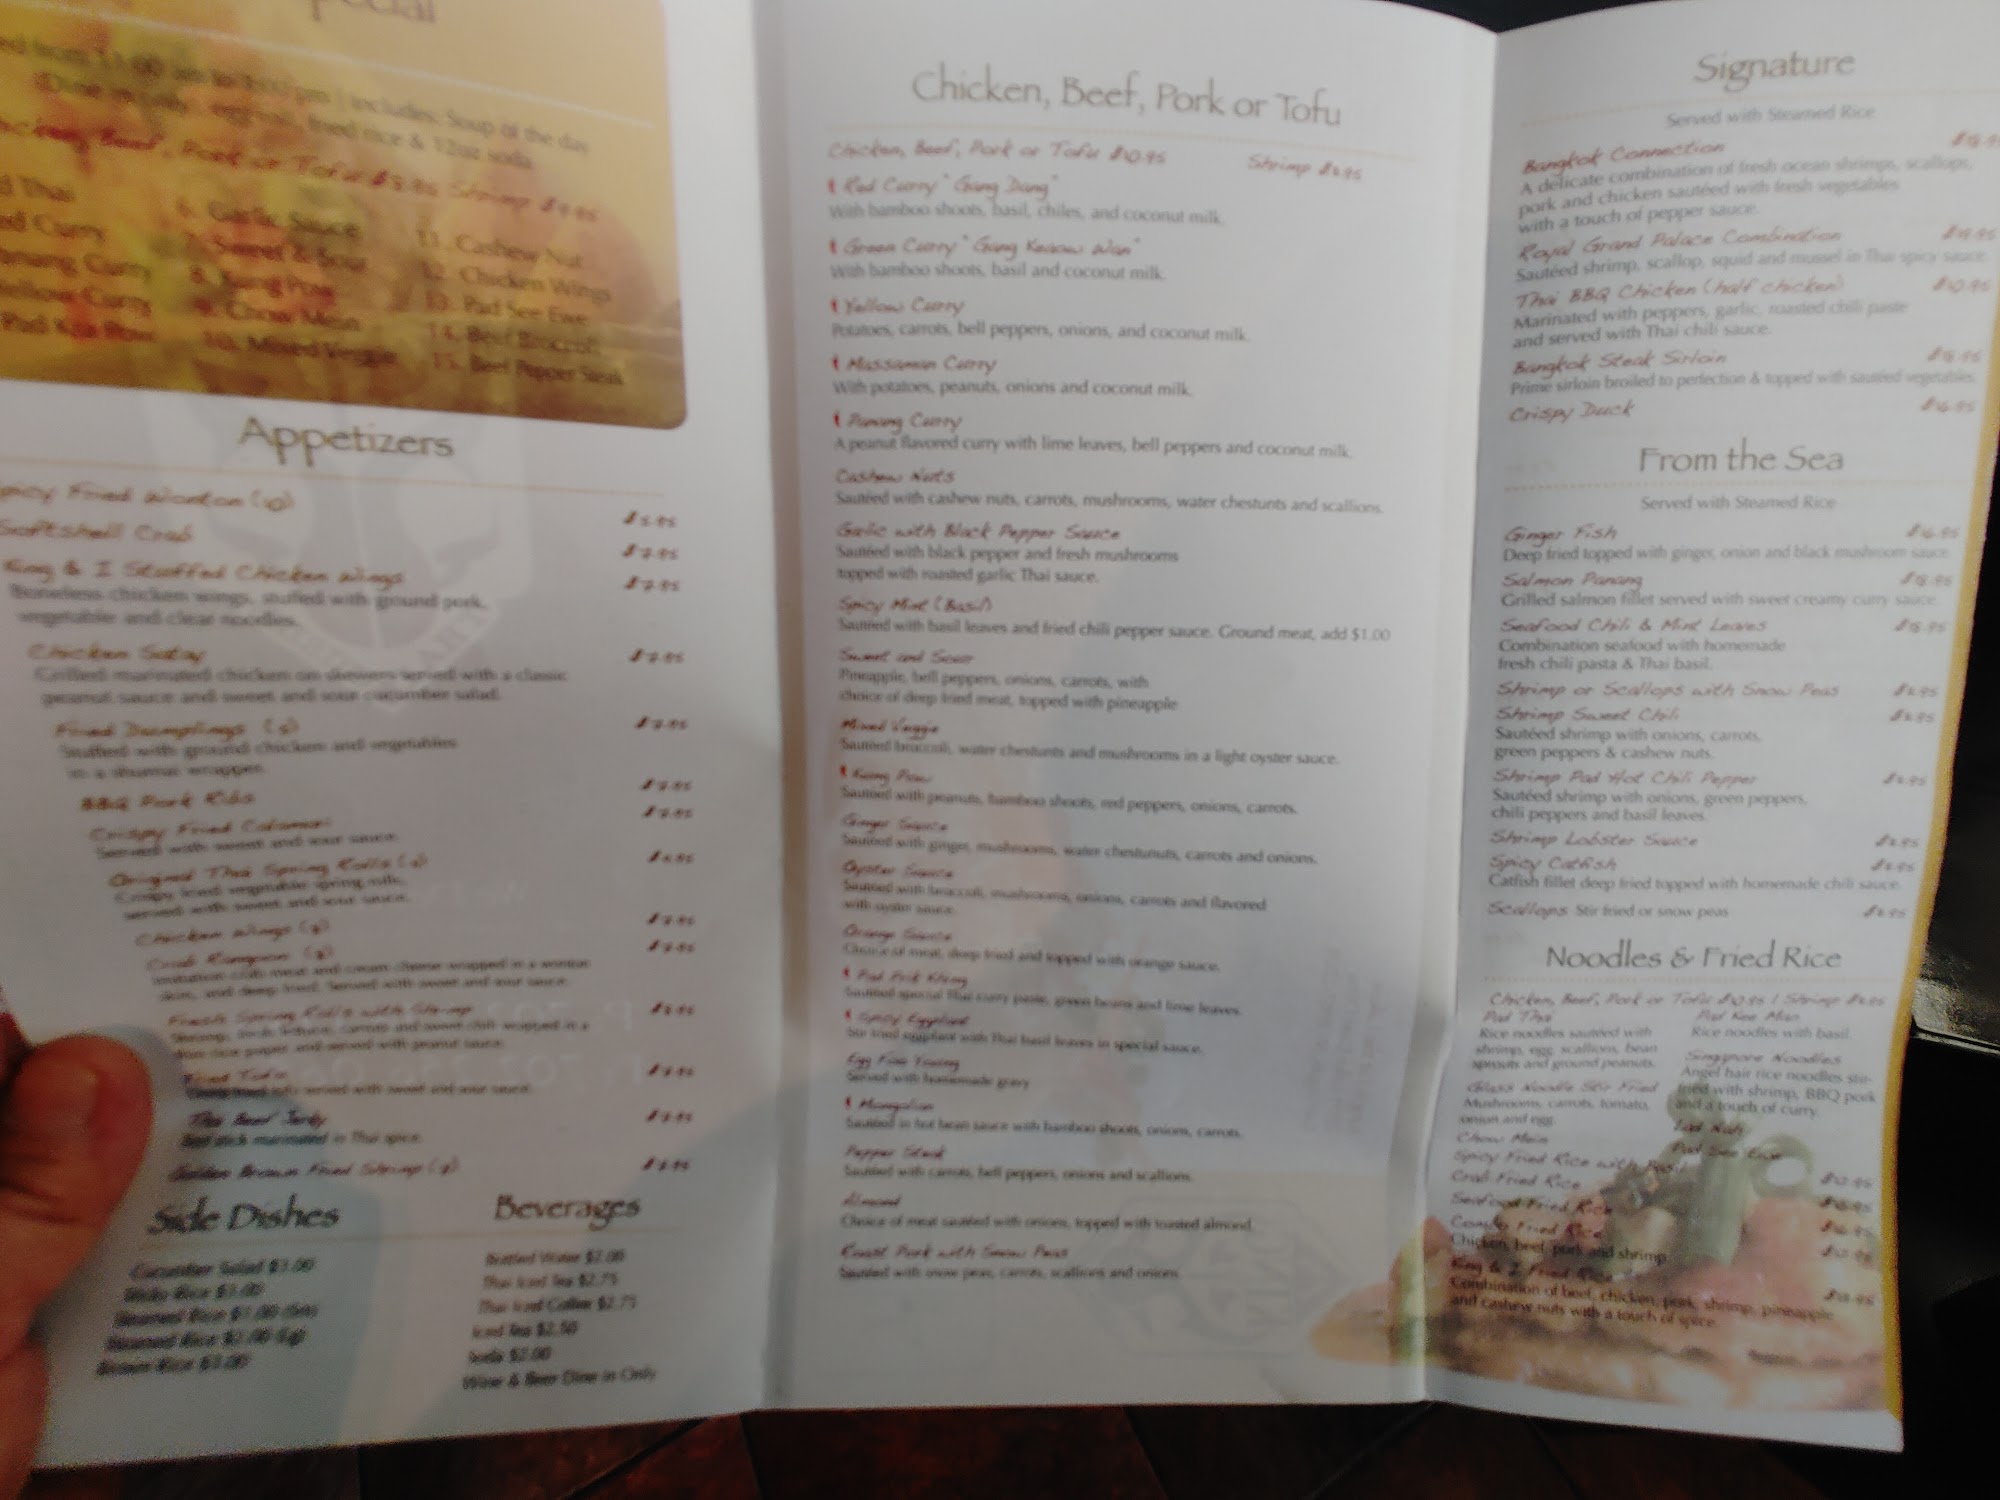 Special
(Dine in only) eggroll, fried rice & 12oz soda
Chicken, Beef, Pork or Tofu $8.95 Shrimp $9.95
6. Garlic Sauce
7. Sweet & Sour
8. Kung Pow
9. Chow Mein
10. Mixed Veggie
11. Cashew Nut
12. Chicken Wings
13. Pad See Ewe
14. Beef Broccoli
15. Beef Pepper Steak
Appetizers
Spicy Fried Wonton (10)
$5.95
Softshell Crab
$7.95
King & I Stuffed Chicken Wings
$7.95
Boneless chicken wings, stuffed with ground pork,
vegetables and clear noodles.
Chicken Satay
$7.95
Grilled marinated chicken on skewers served with a classic
peanut sauce and sweet and sour cucumber salad.
Fried Dumplings
$7.95
Stuffed with ground chicken and vegetables
in a shumai wrapper.
BBQ Pork Ribs
$7.95
Crispy Fried Calamari
$7.95
Served with sweet and sour sauce.
Original Thai Spring Rolls
Crispy fried vegetable spring rolls,
served with sweet and sour sauce.
Chicken Wings
$7.95
Crab Rangoon
$7.95
Imitation crab meat and cream cheese wrapped in a wonton
skin, and deep fried. Served with sweet and sour sauce.
Fresh Spring Rolls with Shrimp
rice paper and served with peanut sauce.
Fried Tofu
$7.95
served with sweet and sour sauce.
Thai Beef Jerky
$7.95
marinated in Thai spice.
Golden Brown Fried Shrimp
$7.95
Side Dishes
Cucumber Salad $3.00
Sticky Rice $3.00
Steamed Rice $1.00 (sm)
Steamed Rice $2.00 (lg)
Brown Rice $3.00
Beverages
Bottled Water $2.00
Thai Iced Tea $2.75
Thai Iced Coffee $2.75
Iced Tea $2.50
Soda $2.00
Wine & Beer Dine in Only
Chicken, Beef, Pork or Tofu
Chicken, Beef, Pork or Tofu $10.95 Shrimp
Red Curry "Gang Dang"
With bamboo shoots, basil, chiles, and coconut milk.
Green Curry "Gang Keaow Wan"
With bamboo shoots, basil and coconut milk.
Yellow Curry
Potatoes, carrots, bell peppers, onions, and coconut milk.
Massaman Curry
With potatoes, peanuts, onions and coconut milk.
Panang Curry
A peanut flavored curry with lime leaves, bell peppers and coconut milk.
Cashew Nuts
Sautéed with cashew nuts, carrots, mushrooms, water chestunts and scallions.
Garlic with Black Pepper Sauce
Sautéed with black pepper and fresh mushrooms
topped with roasted garlic Thai sauce.
Spicy Mint (Basil)
Sautéed with basil leaves and fried chili pepper sauce. Ground meat, add $1.00
Sweet and Sour
Pineapple, bell peppers, onions, carrots, with
choice of deep fried meat, topped with pineapple
Mixed Veggie
Sautéed broccoli, water chestunts and mushrooms in a light oyster sauce.
Kung Pow
Sautéed with peanuts, bamboo shoots, red peppers, onions, carrots.
Ginger Sauce
Sautéed with ginger, mushrooms, water chestunuts, carrots and onions.
Oyster Sauce
Sautéed with broccoli, mushrooms, onions, carrots and flavored
with oyster sauce.
Orange Sauce
Choice of meat, deep fried and topped with orange sauce.
Pad Prik Khing
Sautéed special Thai curry paste, green beans and lime leaves.
Spicy Eggplant
Stir fried eggplant with Thai basil leaves in special sauce.
Egg Foo Young
Served with homemade gravy
Mongolian
Sautéed in hot bean sauce with bamboo shoots, onions, carrots.
Pepper Steak
Sautéed with carrots, bell peppers, onions and scallions.
Almond
Choice of meat sautéed with onions, topped with toasted almond.
Roast Pork with Snow Peas
Sautéed with snow peas, carrots, scallions and onions
Signature
Served with Steamed Rice
Bangkok Connection
A delicate combination of fresh ocean shrimps, scallops,
pork and chicken sautéed with fresh vegetables
with a touch of pepper sauce.
Royal Grand Palace Combination
Sautéed shrimp, scallop, squid and mussel in Thai spicy sauce.
Thai BBQ Chicken (half chicken) $10.95
Marinated with peppers, garlic, roasted chili paste
and served with Thai chili sauce.
Bangkok Steak Sirloin
Prime sirloin broiled to perfection & topped with sautéed vegetables.
Crispy Duck $16.95
From the Sea
Served with Steamed Rice
Ginger Fish $16.95
Deep fried topped with ginger, onion and black mushroom sauce
Salmon Panang
Grilled salmon fillet served with sweet creamy curry sauce.
Seafood Chili & Mint Leaves
Combination seafood with homemade
fresh chili pasta & Thai basil.
Shrimp or Scallops with Snow Peas
Shrimp Sweet Chili
Sautéed shrimp with onions, carrots,
green peppers & cashew nuts.
Shrimp Pad Hot Chili Pepper
Sautéed shrimp with onions, green peppers,
chili peppers and basil leaves.
Shrimp Lobster Sauce
Spicy Catfish
Catfish fillet deep fried topped with homemade chili sauce.
Scallops Stir fried or snow peas
Noodles & Fried Rice
Chicken, Beef, Pork or Tofu $10.95 | Shrimp
Pad Thai
Rice noodles sautéed with
shrimp, egg, scallions, bean
sprouts and ground peanuts.
Glass Noodle Stir Fried
Mushrooms, carrots, tomato,
onion and egg.
Chow Mein
Spicy Fried Rice with Basil
Pad Kee Mao
Rice noodles with basil.
Singapore Noodles
Angel hair rice noodles stir-
fried with shrimp, BBQ pork
and a touch of curry.
Lad Nah
Pad See Ewe
Crab Fried Rice
Seafood Fried Rice
Combo Fried Rice
Chicken, beef, pork and shrimp
King & I Fried Rice
Combination of beef, chicken, pork, shrimp, pineapple
and cashew nuts with a touch of spice.